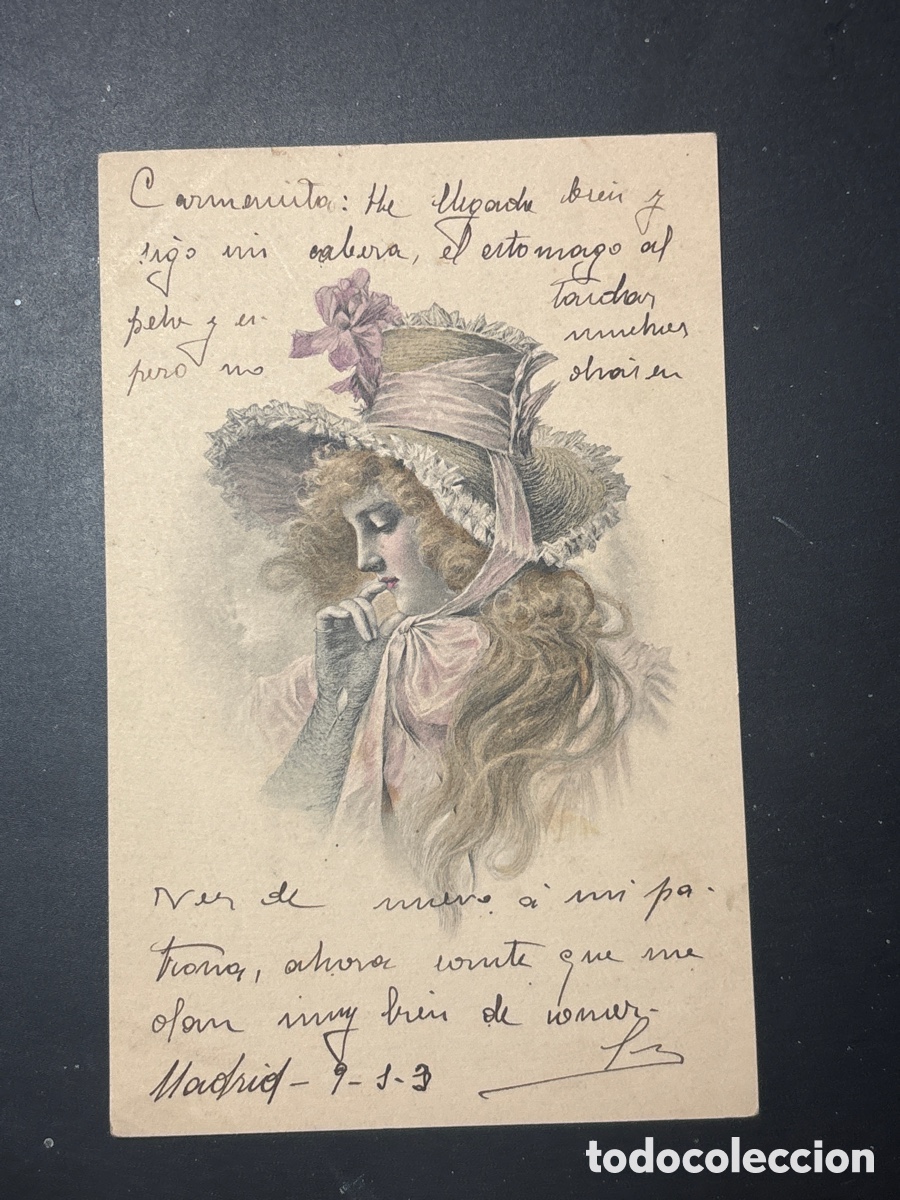 Carmencita: He llegado bien y
sigo sin cabeza, el estomago al
pelo y es- tardar
pero no muchos
dias en
Ver de nuevo á mi pa-
trona, ahora conste que me
dan muy bien de comer-
Madrid - 9 - 1 - 3
todocoleccion